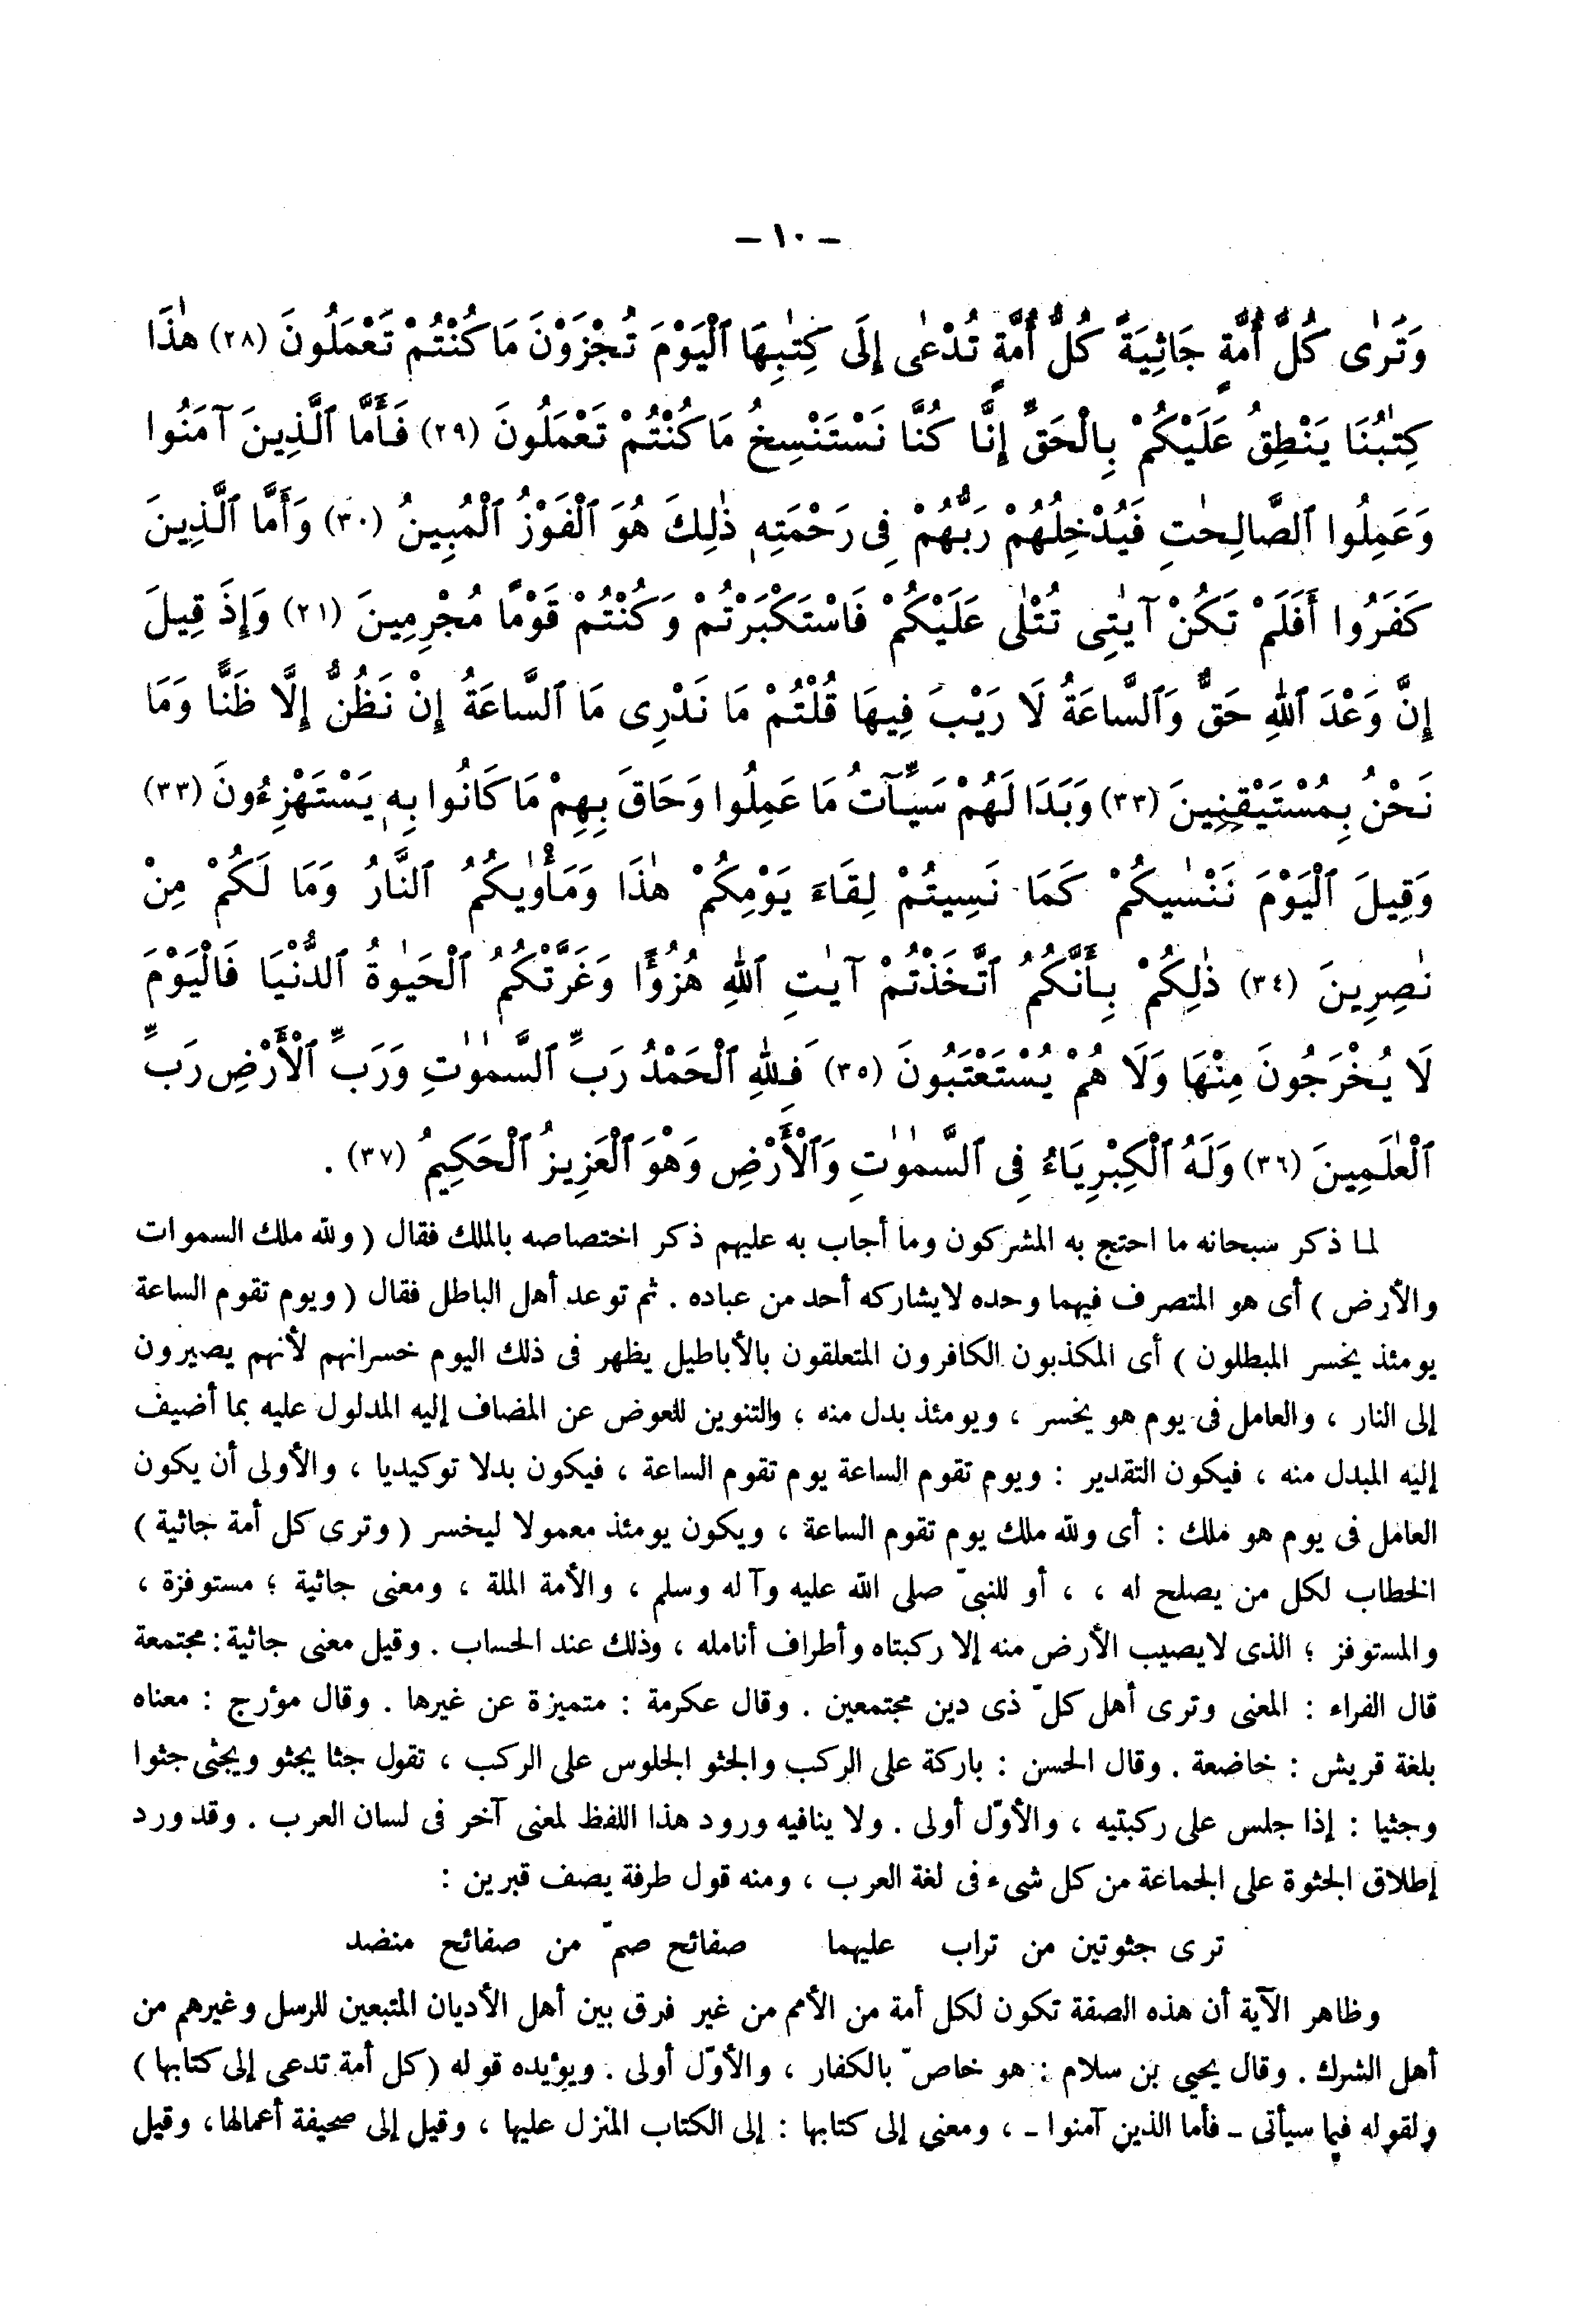 — ١٠ —
وَتَرٰى كُلَّ أُمَّةٍ جَاثِيَةً كُلُّ أُمَّةٍ تُدْعٰى إِلَى كِتٰبِهَا ٱلْيَوْمَ تُجْزَوْنَ مَا كُنْتُمْ تَعْمَلُونَ (٢٨) هٰذَا
كِتٰبُنَا يَنْطِقُ عَلَيْكُمْ بِالْحَقِّ إِنَّا كُنَّا نَسْتَنْسِخُ مَا كُنْتُمْ تَعْمَلُونَ (٢٩) فَأَمَّا ٱلَّذِينَ آمَنُوا
وَعَمِلُوا ٱلصَّالِحٰتِ فَيُدْخِلُهُمْ رَبُّهُمْ فِى رَحْمَتِهِ ذٰلِكَ هُوَ ٱلْفَوْزُ ٱلْمُبِينُ (٣٠) وَأَمَّا ٱلَّذِينَ
كَفَرُوا أَفَلَمْ تَكُنْ آيٰتِى تُتْلٰى عَلَيْكُمْ فَاسْتَكْبَرْتُمْ وَكُنْتُمْ قَوْمًا مُجْرِمِينَ (٢١) وَإِذَ قِيلَ
إِنَّ وَعْدَ ٱللهِ حَقٌّ وَٱلسَّاعَةُ لَا رَيْبَ فِيهَا قُلْتُمْ مَا نَدْرِى مَا ٱلسَّاعَةُ إِنْ نَظُنُّ إِلَّا ظَنًّا وَمَا
نَحْنُ بِمُسْتَيْقِنِينَ (٣٣) وَبَدَا لَهُمْ سَيِّآتُ مَا عَمِلُوا وَحَاقَ بِهِمْ مَا كَانُوا بِهِ يَسْتَهْزِءُونَ (٣٣)
وَقِيلَ ٱلْيَوْمَ نَنْسٰيكُمْ كَمَا نَسِيتُمْ لِقَاءَ يَوْمِكُمْ هٰذَا وَمَأْوٰيكُمُ ٱلنَّارُ وَمَا لَكُمْ مِنْ
نٰصِرِينَ (٣٤) ذٰلِكُمْ بِأَنَّكُمُ ٱتَّخَذْتُمْ آيٰتِ ٱللهِ هُزُوًا وَغَرَّتْكُمُ ٱلْحَيٰوةُ ٱلدُّنْيَا فَالْيَوْمَ
لَا يُخْرَجُونَ مِنْهَا وَلَا هُمْ يُسْتَعْتَبُونَ (٣٥) فَلِلّٰهِ ٱلْحَمْدُ رَبِّ ٱلسَّمٰوٰتِ وَرَبِّ ٱلْأَرْضِ رَبِّ
ٱلْعٰلَمِينَ (٣٦) وَلَهُ ٱلْكِبْرِيَاءُ فِى ٱلسَّمٰوٰتِ وَٱلْأَرْضِ وَهْوَ ٱلْعَزِيزُ ٱلْحَكِيمُ (٣٧) .
لما ذكر سبحانه ما احتج به المشركون وما أجاب به عليهم ذكر اختصاصه بالملك فقال ( ولله ملك السموات
والأرض ) أى هو المتصرف فيهما وحده لايشاركه أحد من عباده . ثم توعد أهل الباطل فقال ( ويوم تقوم الساعة
يومئذ يخسر المبطلون ) أى المكذبون الكافرون المتعلقون بالأباطيل يظهر فى ذلك اليوم خسرانهم لأنهم يصيرون
إلى النار ، والعامل فى يوم هو يخسر ، ويومئذ بدل منه ، والتنوين للعوض عن المضاف إليه المدلول عليه بما أضيف
إليه المبدل منه ، فيكون التقدير : ويوم تقوم الساعة يوم تقوم الساعة ، فيكون بدلا توكيديا ، والأولى أن يكون
العامل فى يوم هو ملك : أى ولله ملك يوم تقوم الساعة ، ويكون يومئذ معمولا ليخسر ( وترى كل أمة جاثية )
الخطاب لكل من يصلح له ، ، أو للنبىّ صلى الله عليه وآله وسلم ، والأمة الملة ، ومعنى جاثية ؛ مستوفزة ،
والمستوفز ؛ الذى لايصيب الأرض منه إلا ركبتاه وأطراف أنامله ، وذلك عند الحساب . وقيل معنى جاثية : مجتمعة
قال الفراء : المعنى وترى أهل كلّ ذى دين مجتمعين . وقال عكرمة : متميزة عن غيرها . وقال مؤرج : معناه
بلغة قريش : خاضعة . وقال الحسن : باركة على الركب والجثو الجلوس على الركب ، تقول جثا يجثو ويجثى جثوا
وجثيا : إذا جلس على ركبتيه ، والأوّل أولى . ولا ينافيه ورود هذا اللفظ لمعنى آخر فى لسان العرب . وقد ورد
إطلاق الجثوة على الجماعة من كل شىء فى لغة العرب ، ومنه قول طرفة يصف قبرين :
ترى جثوتين من تراب عليهما صفائح صمّ من صفائح منضد
وظاهر الآية أن هذه الصفة تكون لكل أمة من الأمم من غير فرق بين أهل الأديان المتبعين للرسل وغيرهم من
أهل الشرك . وقال يحيى بن سلام : هو خاصّ بالكفار ، والأوّل أولى . ويؤيده قوله ( كل أمة تدعى إلى كتابها )
ولقوله فيما سيأتى - فأما الذين آمنوا - ، ومعنى إلى كتابها : إلى الكتاب المنزل عليها ، وقيل إلى صحيفة أعمالها ، وقيل